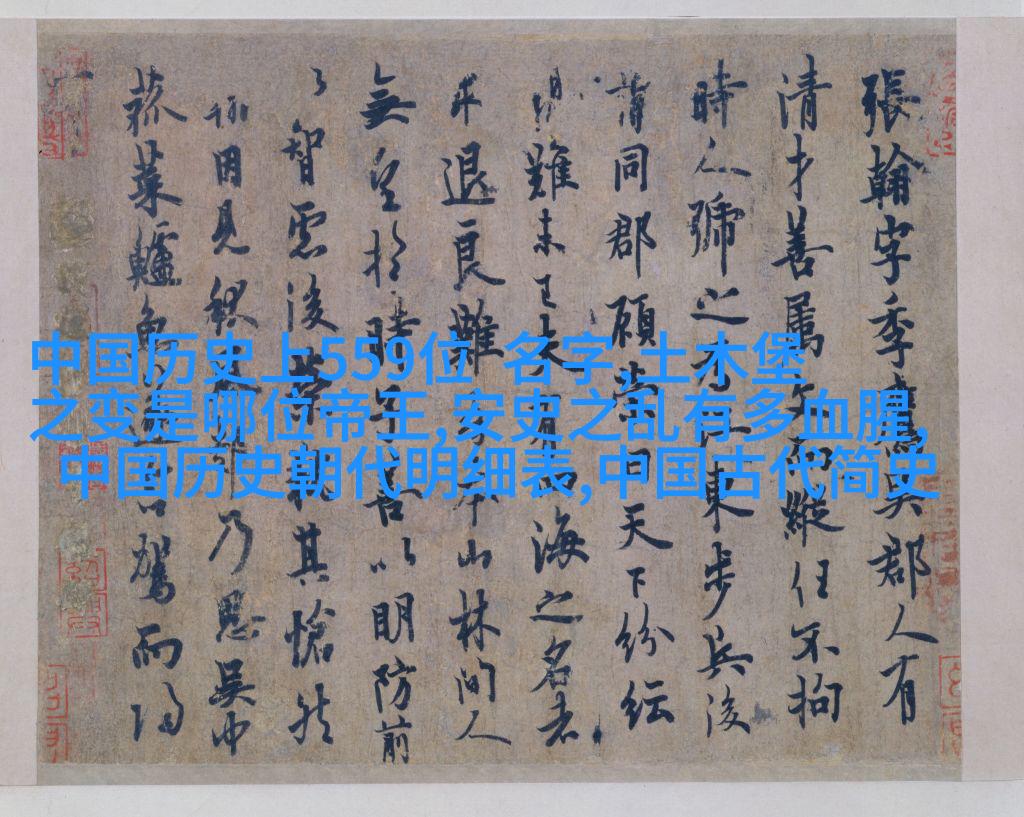 中国历史上559位 名字,土木堡
之变是哪位帝王,安史之乱有多血腥,
中国历史朝代明细表,中国古代简史
張翰字季鷹吳郡人有
清才善属文而縱任不拘
時人號之為江東步兵後
同郡顧榮曰天下紛紜
難未已夫有四海之名者
求退良難吾本山林間人
無望於時子善以明防前
智慮後榮執其愴然
翰因見秋風起乃思吳中
菰菜鱸魚遂命駕而歸